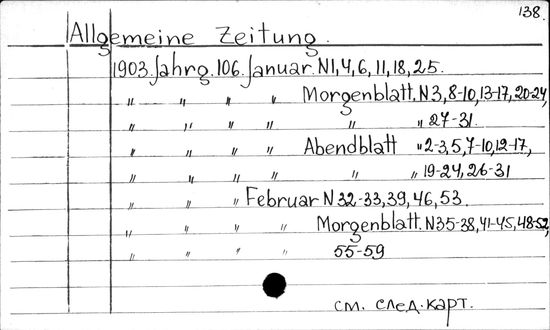 138.
Allgemeine Zeitung.
1903. Jahrg. 106. Januar. N1, 4, 6, 11, 18, 25.
" " " " Morgenblatt. N3, 8-10, 13-17, 20-24,
" " " " " " 27-31.
" " " " Abendblatt " 2-3, 5, 7-10, 12-17,
" " " " " " 19-24, 26-31
" " " Februar N 32-33, 39, 46, 53.
" " " " Morgenblatt. N35-38, 41-45, 48-52,
" " " " 55-59
см. след. карт.